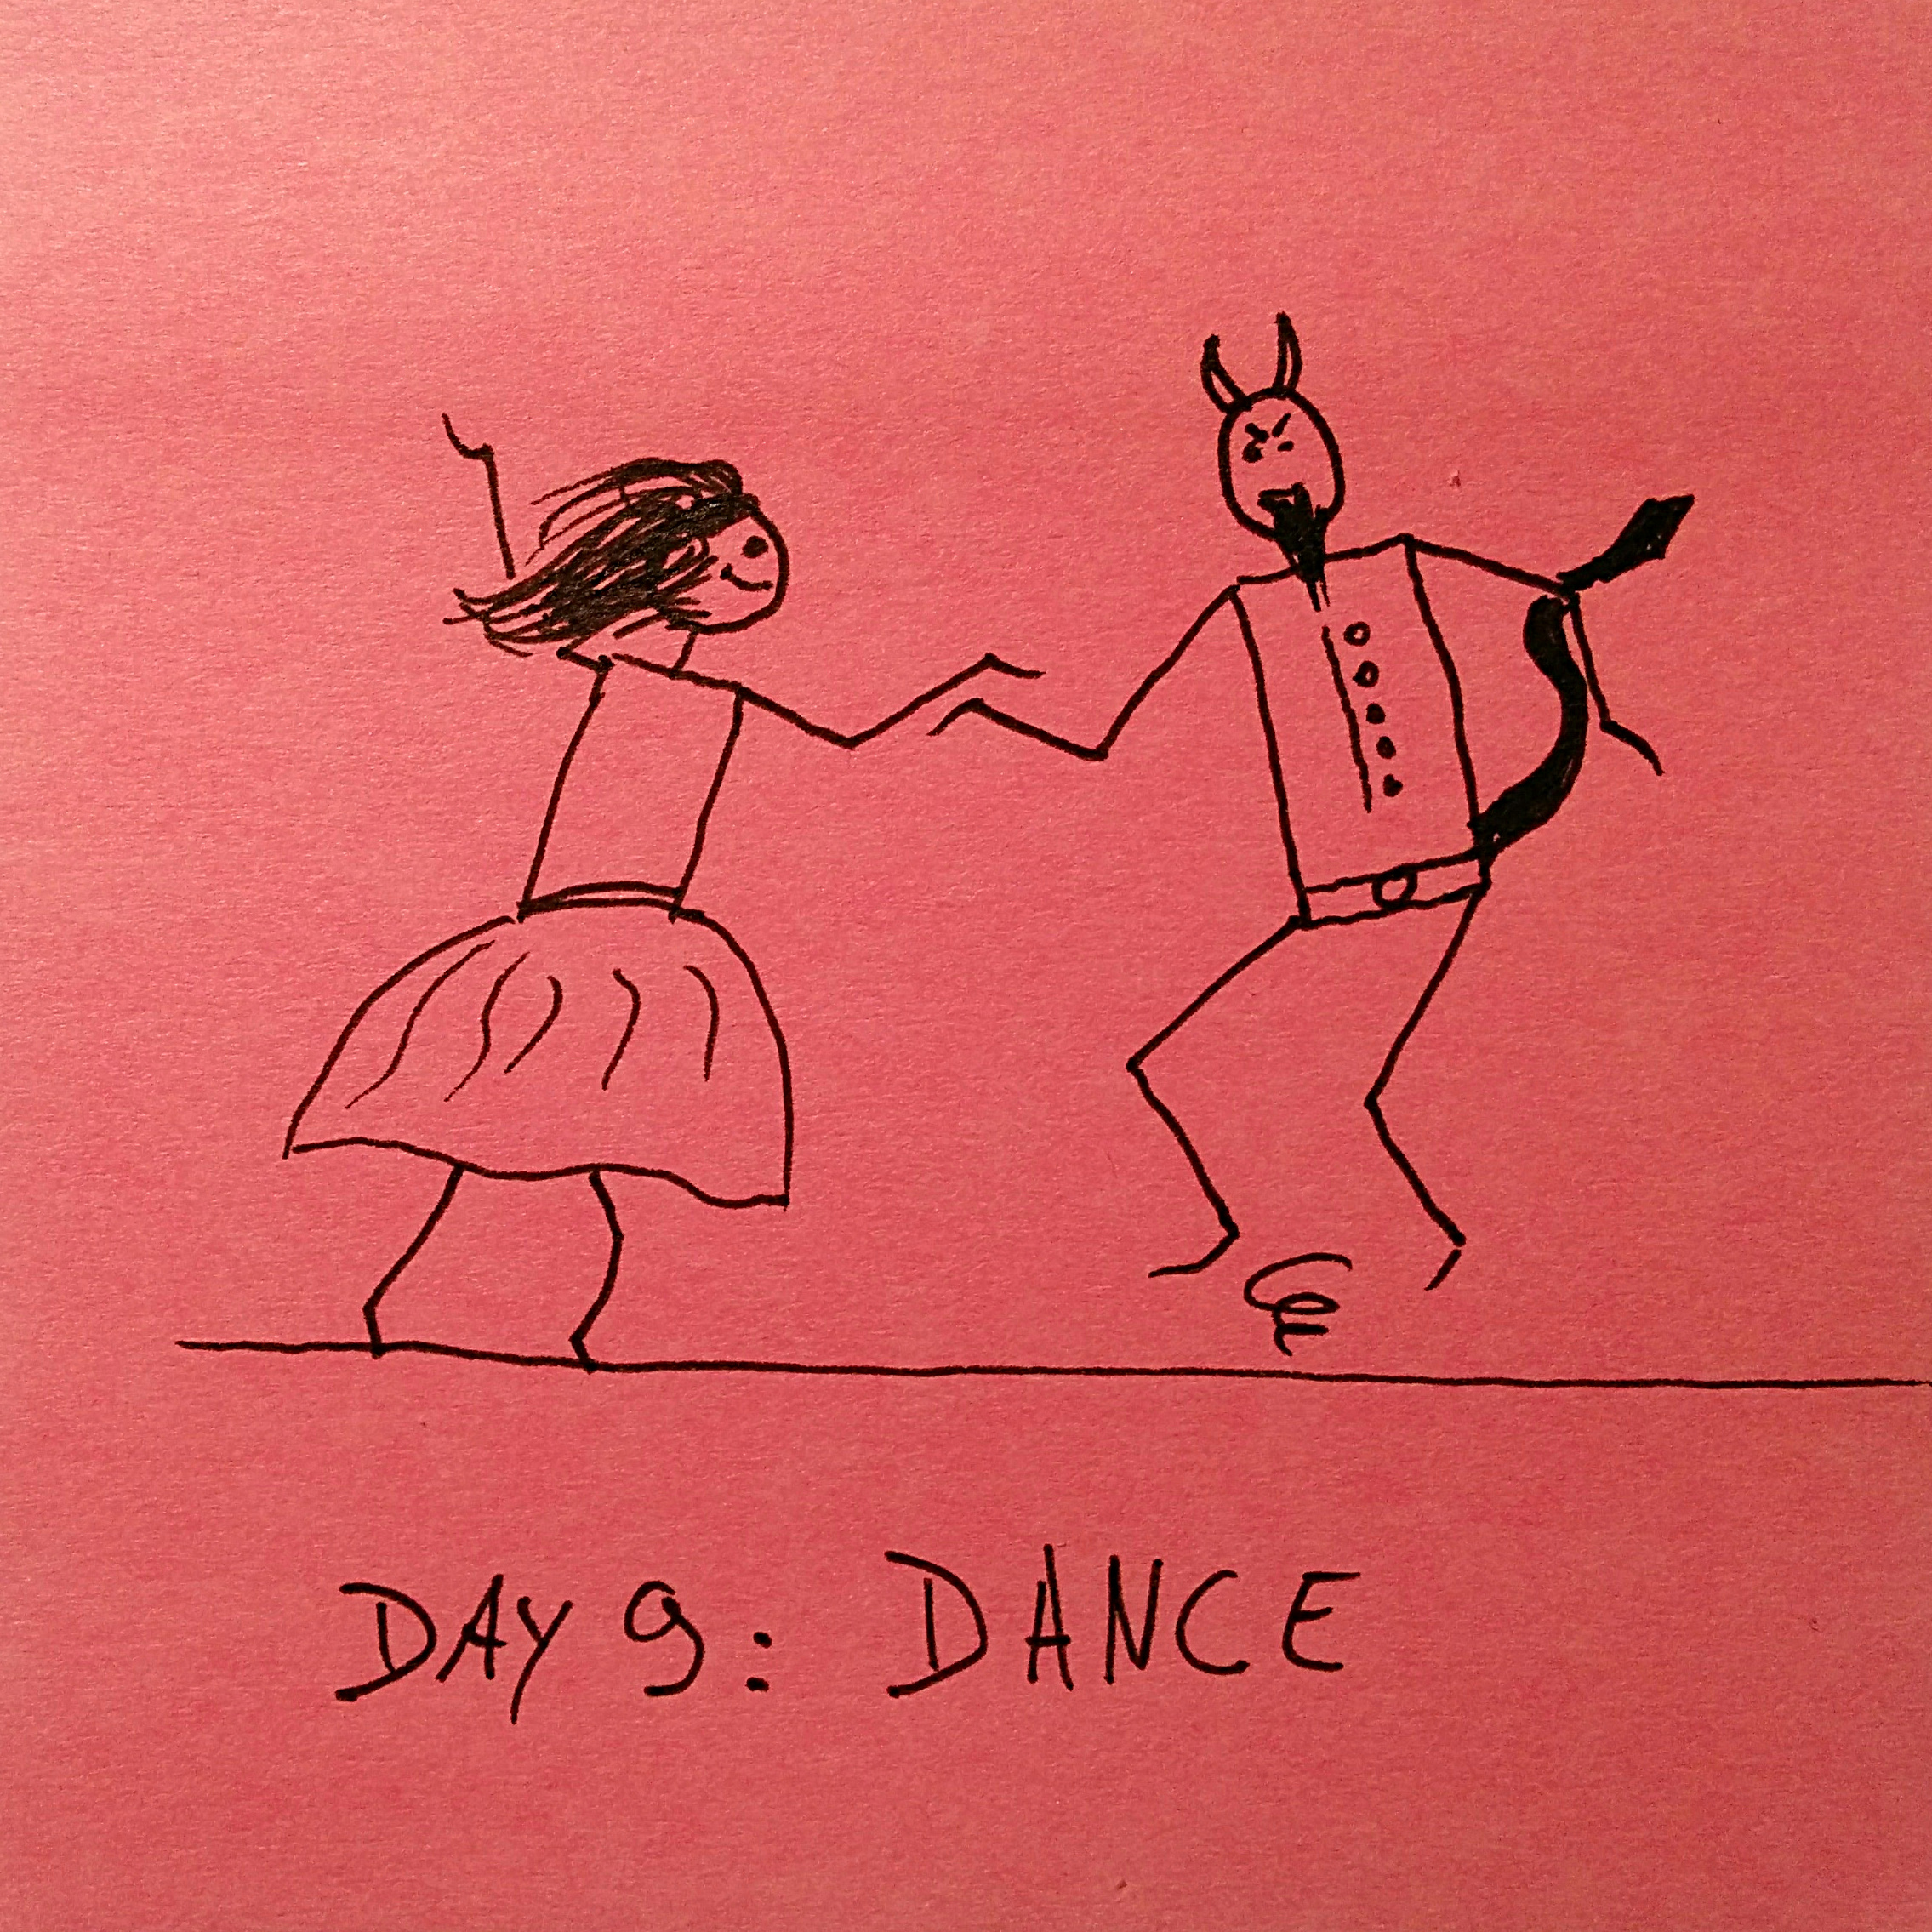 DAY 9: DANCE